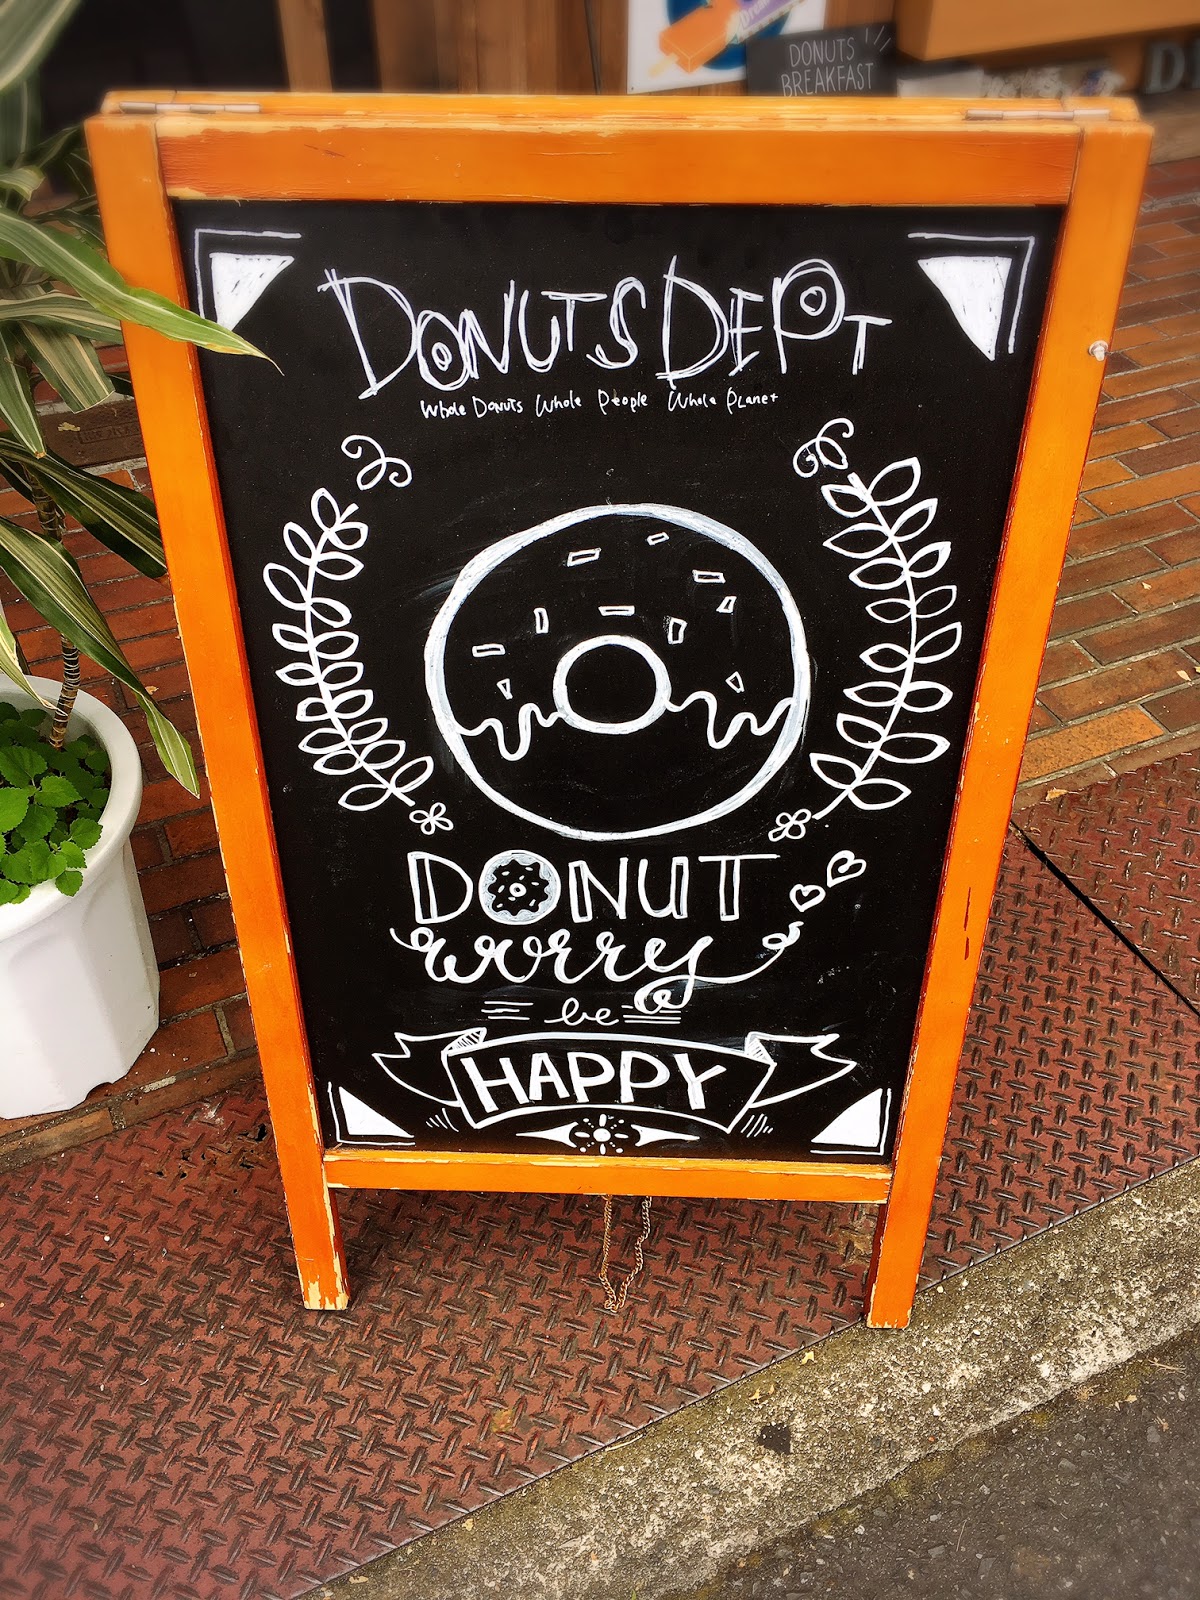 DONUTS
BREAKFAST
DONUTS DEPT
Whole Donuts Whole People Whole Planet
DONUT
worry
be
HAPPY